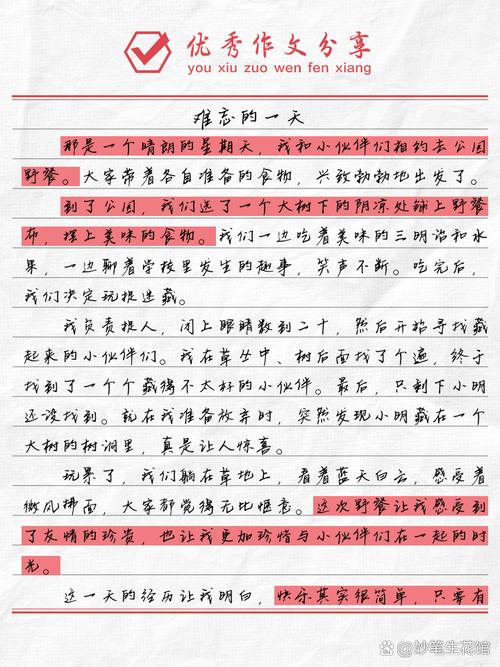 优秀作文分享
you xiu zuo wen fen xiang
难忘的一天
那是一个晴朗的星期天，我和小伙伴们相约去公园
野餐。大家带着各自准备的食物，兴致勃勃地出发了。
到了公园，我们选了一个大树下的阴凉处铺上野餐
布，摆上美味的食物。我们一边吃着美味的三明治和水
果，一边聊着学校里发生的趣事，笑声不断。吃完后，
我们决定玩捉迷藏。
我负责捉人，闭上眼睛数到二十，然后开始寻找藏
起来的小伙伴们。我在草丛中、树后面找了个遍，终于
找到了一个个藏得不太好的小伙伴。最后，只剩下小明
还没找到。就在我准备放弃时，突然发现小明藏在一个
大树的树洞里，真是让人惊喜。
玩累了，我们躺在草地上，看着蓝天白云，感受着
微风拂面，大家都觉得无比惬意。这次野餐让我感受到
了友情的珍贵，也让我更加珍惜与小伙伴们在一起的时
光。
这一天的经历让我明白，快乐其实很简单，只要有
@妙笔生花馆